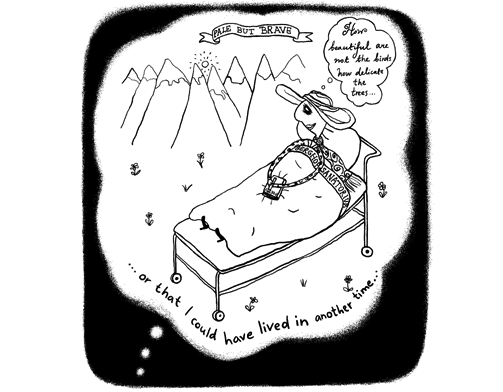 PALE BUT BRAVE
How
beautiful are
not the birds
how delicate
the
trees...
SANATORIUM
...or that I could have lived in another time...